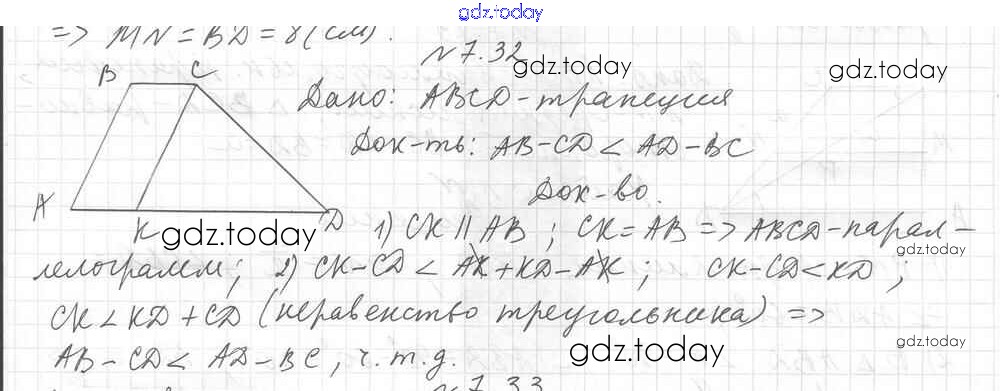 gdz.today
=> MN = BD = 8 (см).
N 7.32
gdz.today
gdz.today
B C
Дано: ABCD - трапеция
Док-ть: AB - CD < AD - BC
Док-во.
A K D
gdz.today
1) CK || AB ; CK = AB => ABCD - парал-
gdz.today
лелограмм; 2) CK - CD < AK + KD - AK ; CK - CD < KD ;
CK < KD + CD (неравенство треугольника) =>
gdz.today
AB - CD < AD - BC, ч.т.д.
gdz.today
N 7.33